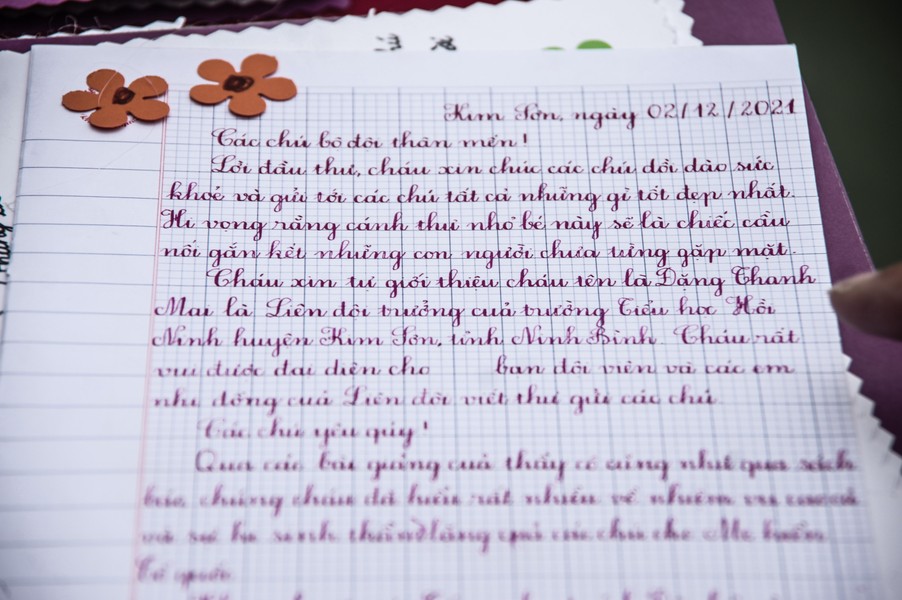 Kim Sơn, ngày 02/12/2021
Các chú bộ đội thân mến!
Lời đầu thư, cháu xin chúc các chú dồi dào sức
khoẻ và gửi tới các chú tất cả những gì tốt đẹp nhất.
Hi vọng rằng cánh thư nhỏ bé này sẽ là chiếc cầu
nối gắn kết những con người chưa từng gặp mặt.
Cháu xin tự giới thiệu cháu tên là Đặng Thanh
Mai là Liên đội trưởng của trường Tiểu học Hồi
Ninh huyện Kim Sơn, tỉnh Ninh Bình. Cháu rất
vui được đại diện cho bạn đội viên và các em
nhi đồng của Liên đội viết thư gửi các chú.
Các chú yêu quý!
Qua các bài giảng của thầy cô cũng như qua sách
báo, chúng cháu đã hiểu rất nhiều về nhiệm vụ
và sự hi sinh thầm lặng của các chú cho
Tổ quốc.